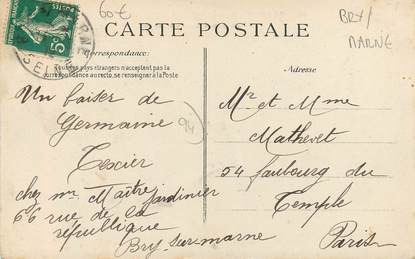 60€
BRY/
MARNE
CARTE POSTALE
Correspondance:
Tous les pays étrangers n'acceptent pas la
correspondance au recto, se renseigner à la Poste
Adresse
5c
SEINE
94
Un baiser de
Germaine
Texier
chez mr Maître jardinier
66 rue de la
république
Bry sur marne
Mr et Mme
Mathevet
54 faubourg du
Temple
Paris